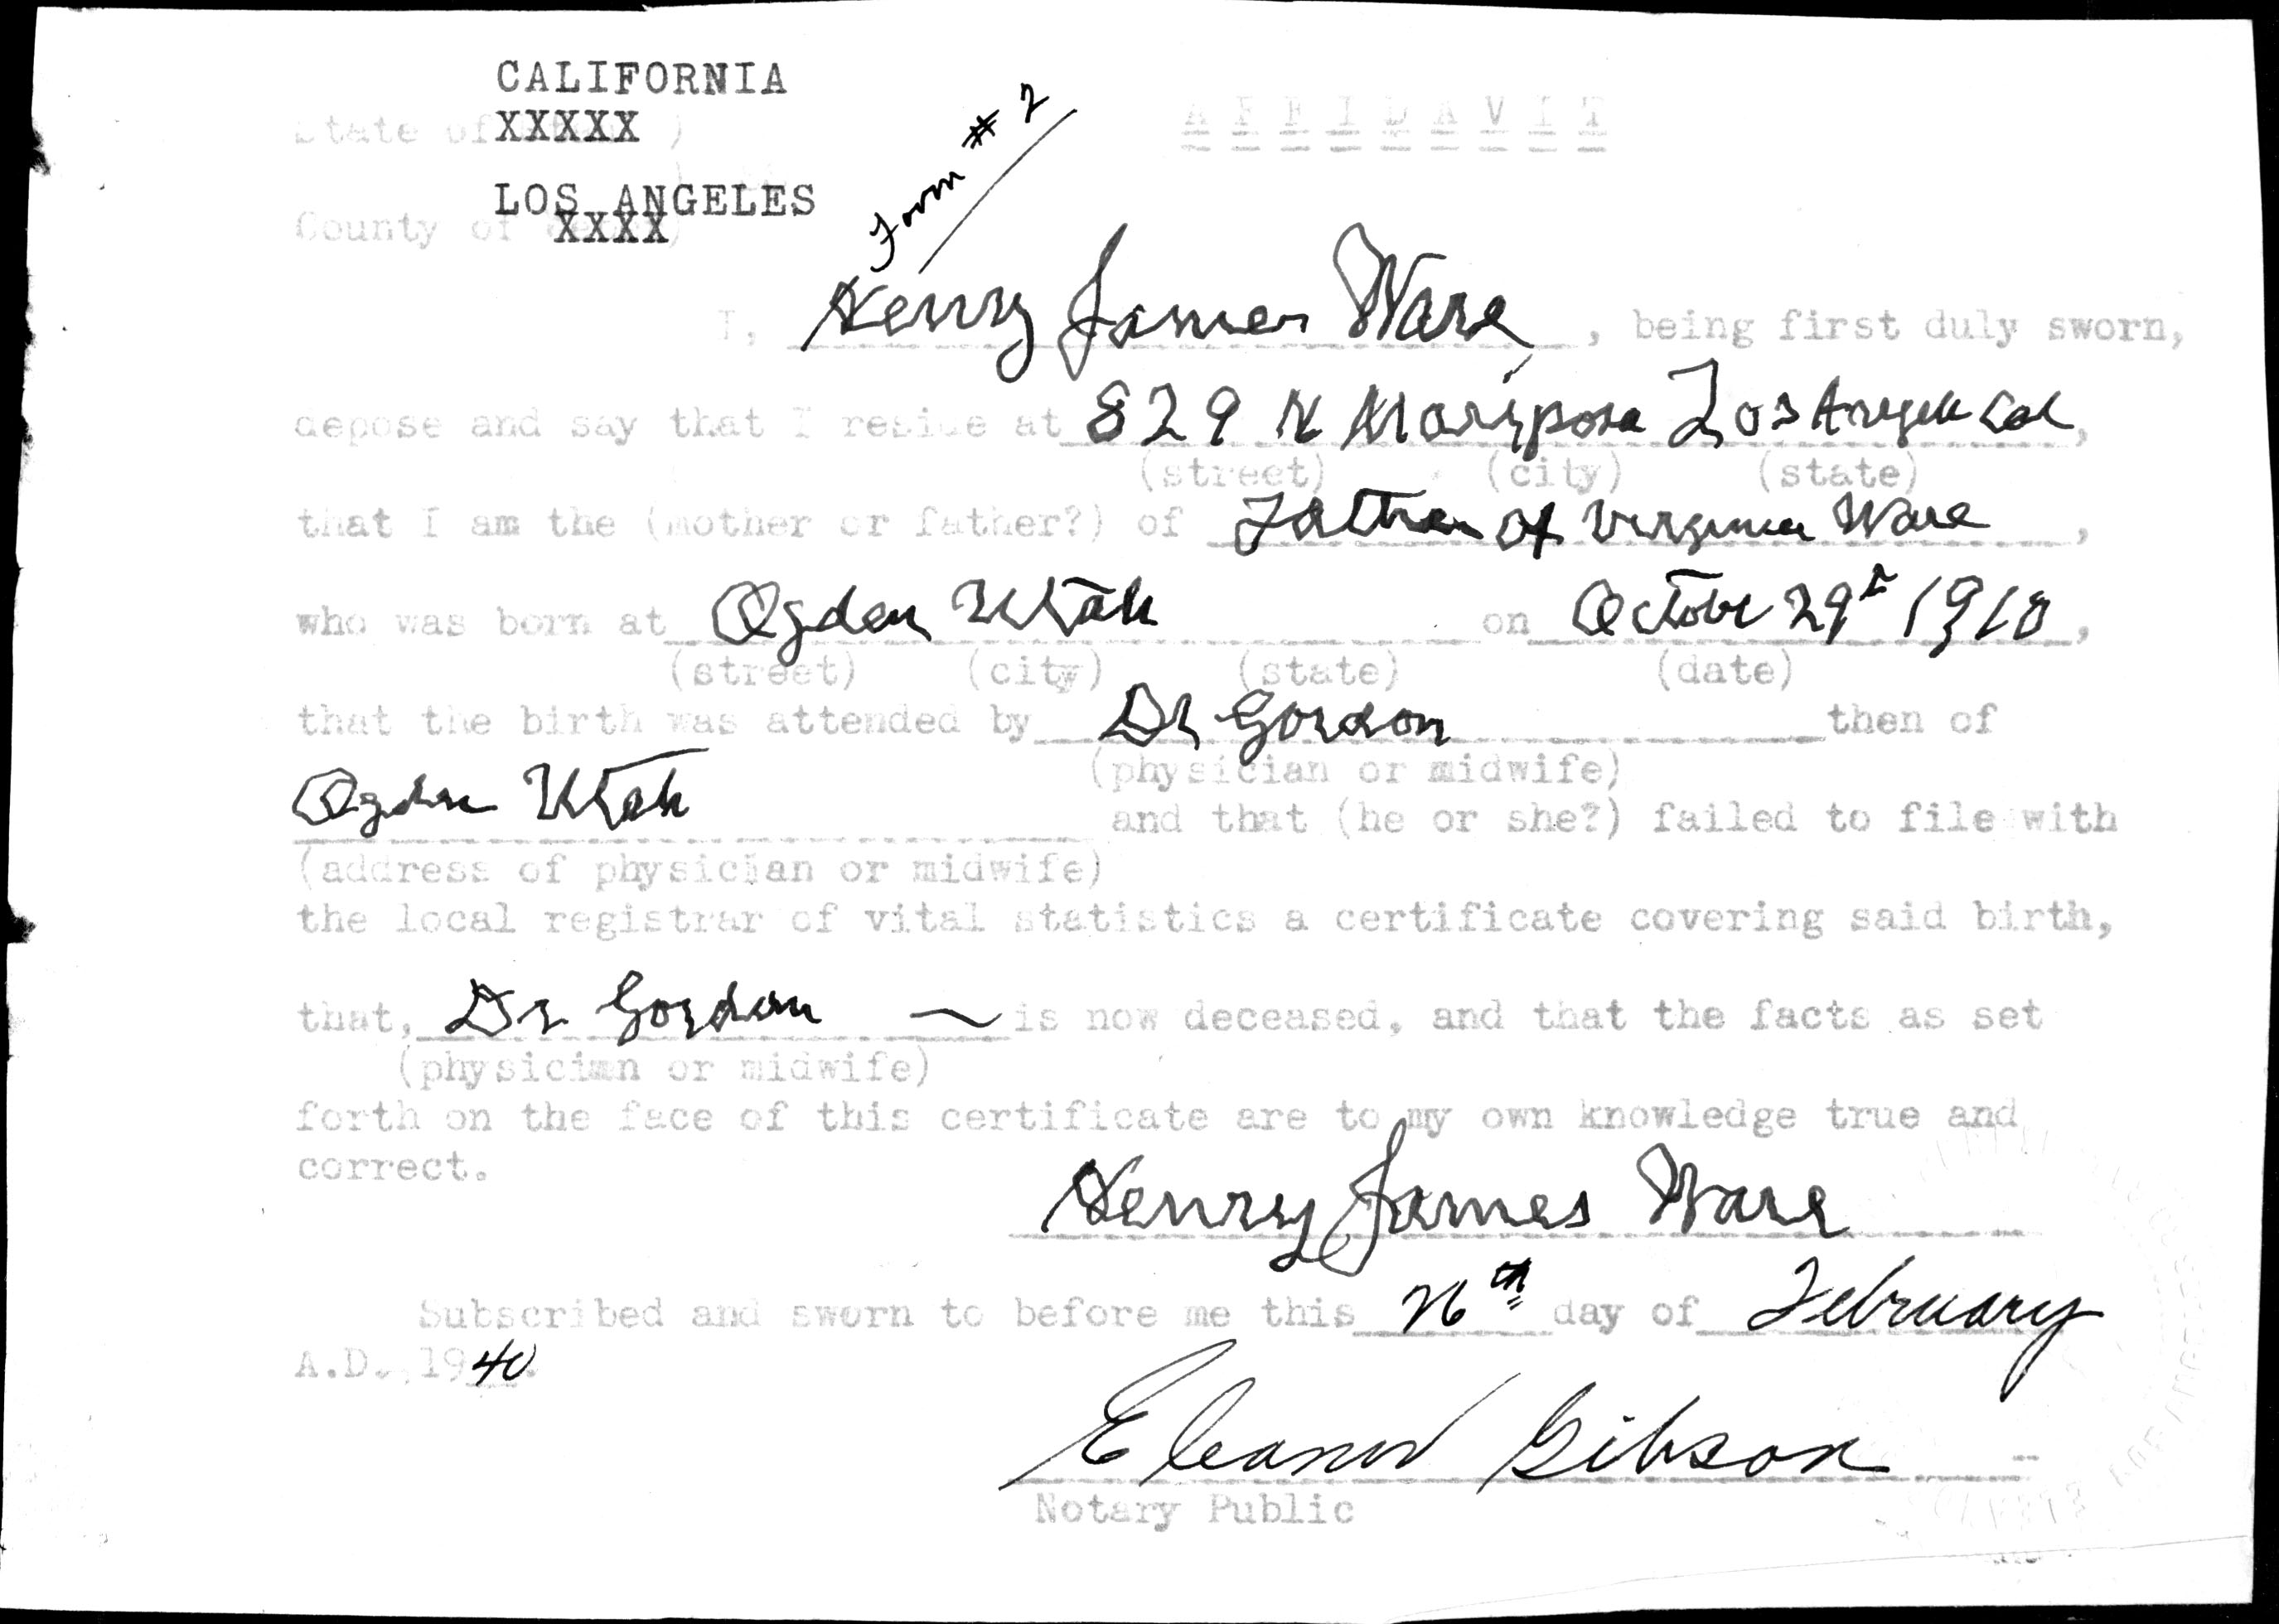 CALIFORNIA
State of XXXXX )
AFFIDAVIT
Form # 2
LOS ANGELES
County of XXXX )
I, Henry James Ware, being first duly sworn,
depose and say that I reside at 829 N Mariposa Los Angeles Cal,
(street) (city) (state)
that I am the (mother or father?) of Father of Virginia Ware,
who was born at Ogden Utah on October 29th 1910,
(street) (city) (state) (date)
that the birth was attended by Dr Gordon then of
(physician or midwife)
Ogden Utah and that (he or she?) failed to file with
(address of physician or midwife)
the local registrar of vital statistics a certificate covering said birth,
that, Dr Gordon is now deceased, and that the facts as set
(physician or midwife)
forth on the face of this certificate are to my own knowledge true and
correct.
Henry James Ware
Subscribed and sworn to before me this 26th day of February
A.D., 1940.
Eleanor Gibson
Notary Public